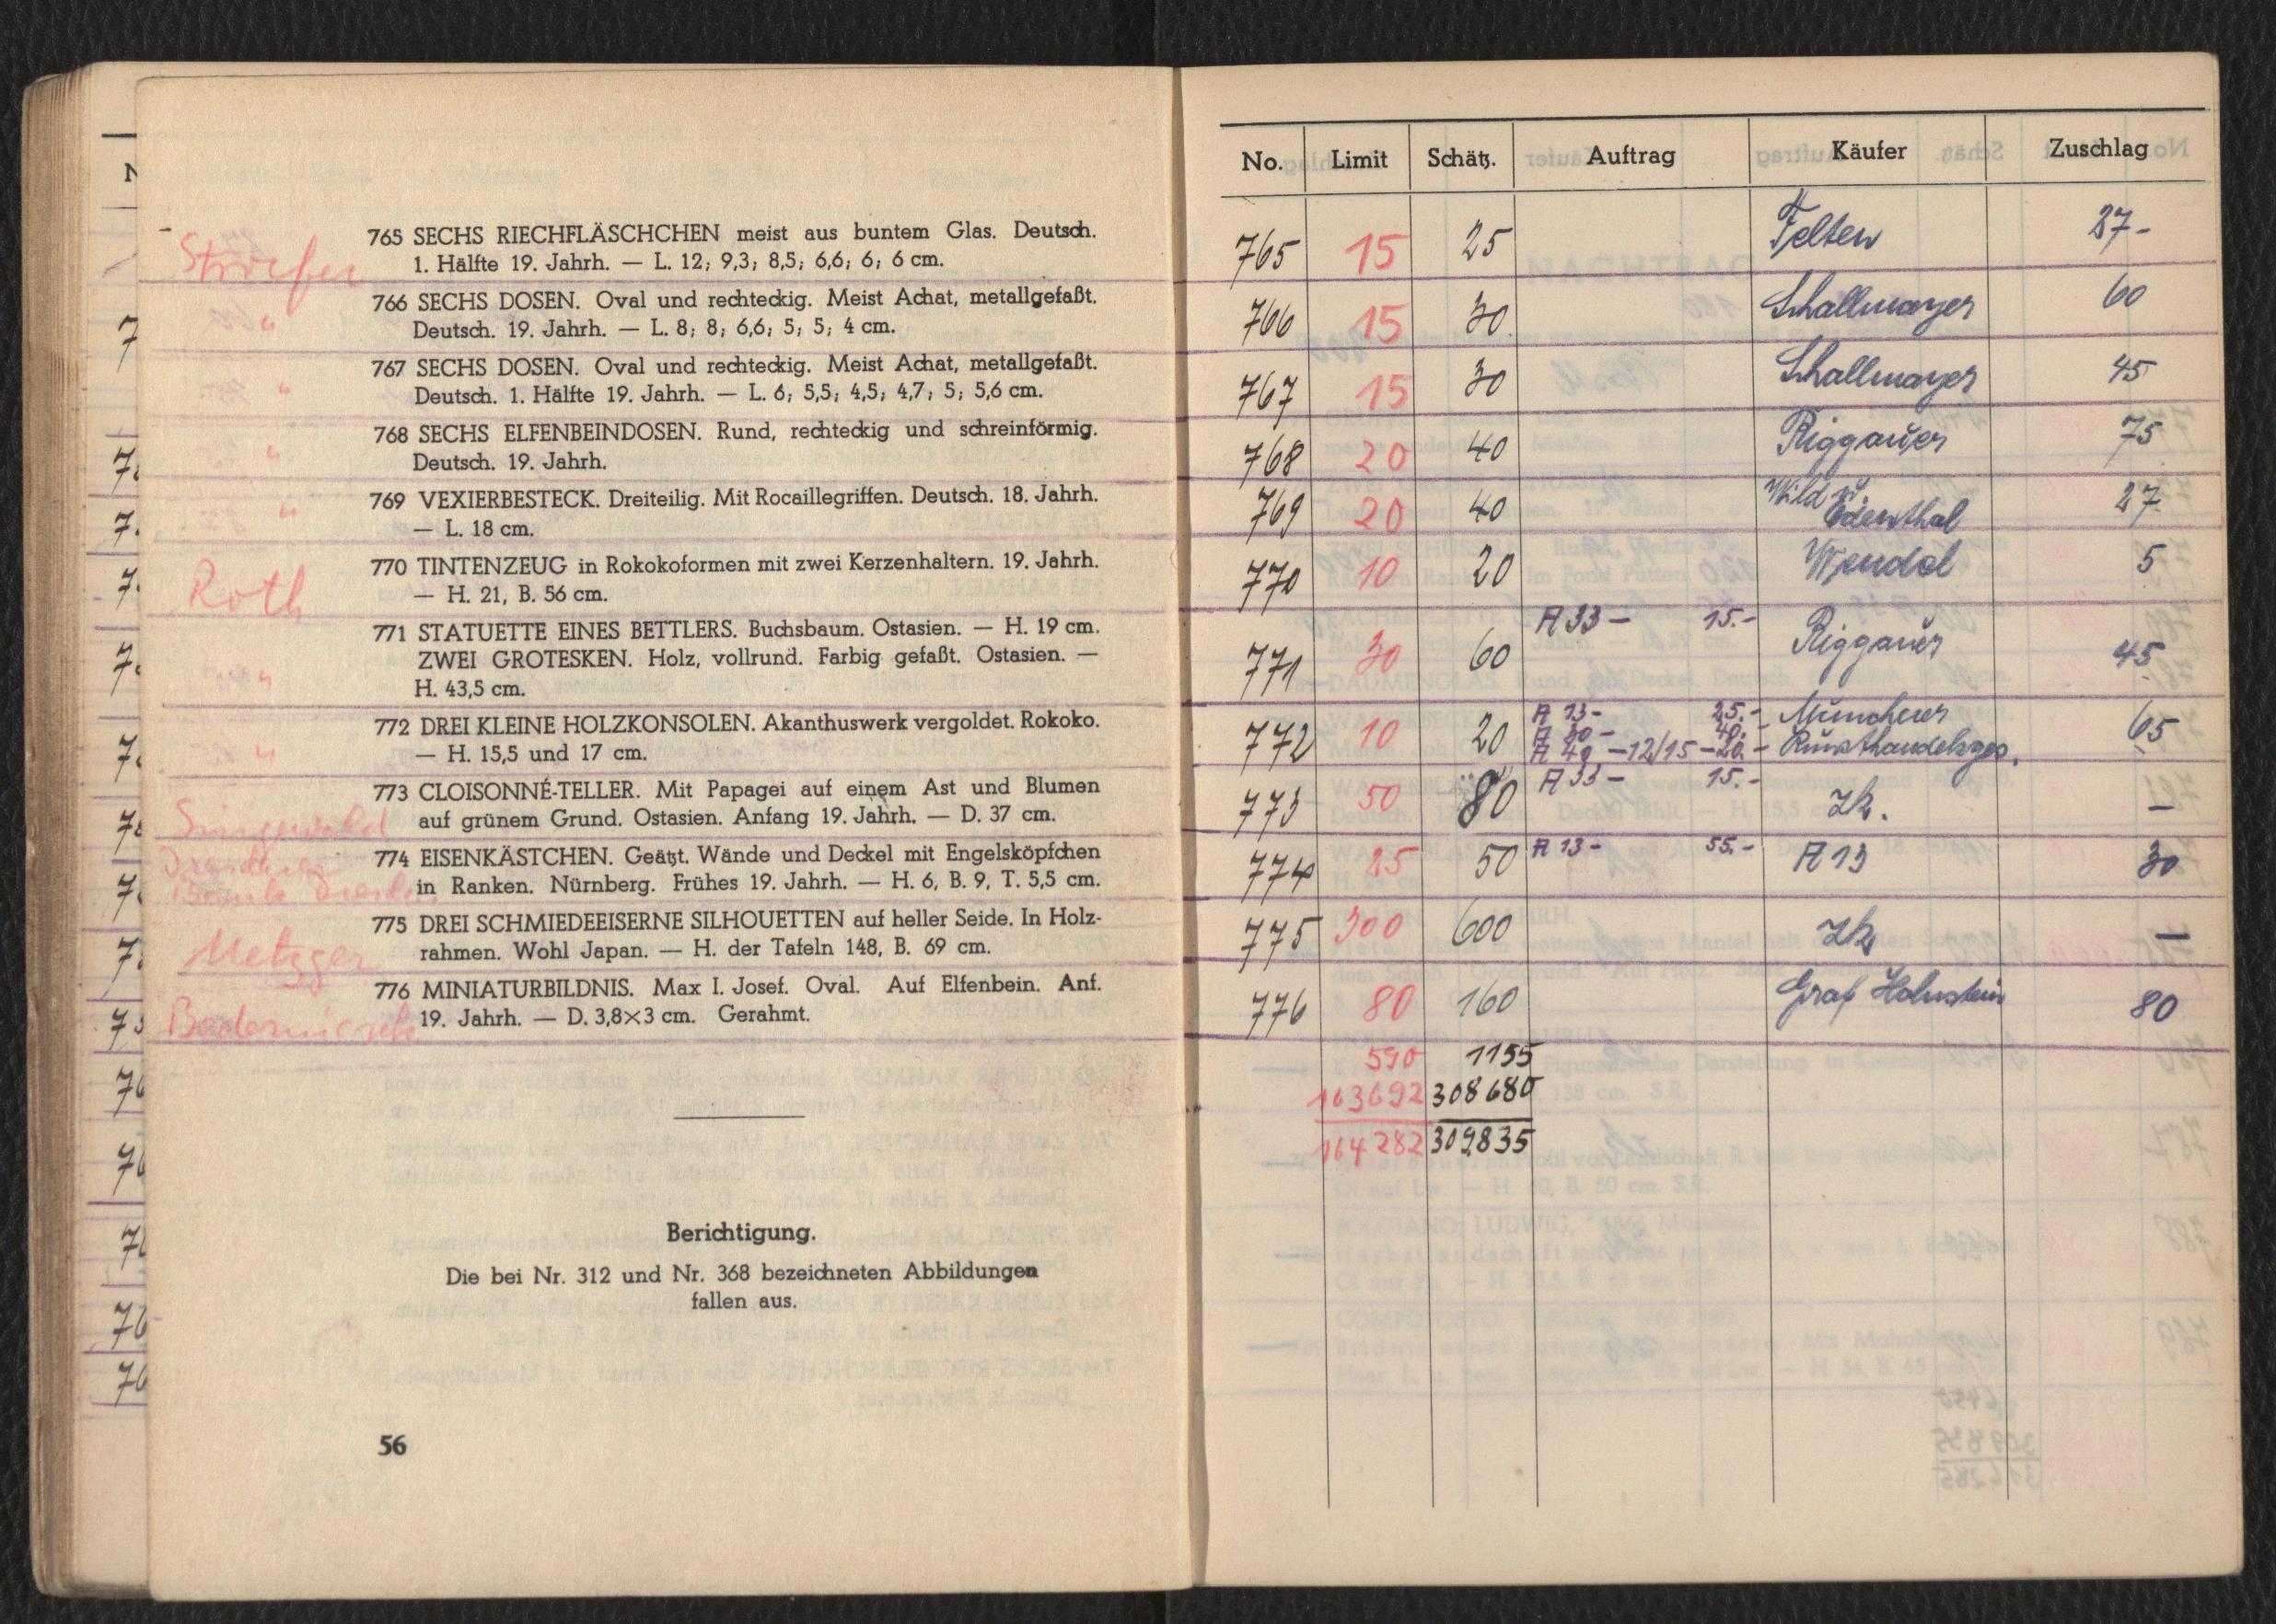 765 SECHS RIECHFLÄSCHCHEN meist aus buntem Glas. Deutsch.
1. Hälfte 19. Jahrh. — L. 12; 9,3; 8,5; 6,6; 6; 6 cm.
766 SECHS DOSEN. Oval und rechteckig. Meist Achat, metallgefaßt.
"
Deutsch. 19. Jahrh. — L. 8; 8; 6,6; 5; 5; 4 cm.
767 SECHS DOSEN. Oval und rechteckig. Meist Achat, metallgefaßt.
"
Deutsch. 1. Hälfte 19. Jahrh. — L. 6; 5,5; 4,5; 4,7; 5; 5,6 cm.
768 SECHS ELFENBEINDOSEN. Rund, rechteckig und schreinförmig.
"
Deutsch. 19. Jahrh.
769 VEXIERBESTECK. Dreiteilig. Mit Rocaillegriffen. Deutsch. 18. Jahrh.
"
— L. 18 cm.
770 TINTENZEUG in Rokokoformen mit zwei Kerzenhaltern. 19. Jahrh.
Roth
— H. 21, B. 56 cm.
771 STATUETTE EINES BETTLERS. Buchsbaum. Ostasien. — H. 19 cm.
ZWEI GROTESKEN. Holz, vollrund. Farbig gefaßt. Ostasien. —
"
H. 43,5 cm.
772 DREI KLEINE HOLZKONSOLEN. Akanthuswerk vergoldet. Rokoko.
"
— H. 15,5 und 17 cm.
773 CLOISONNÉ-TELLER. Mit Papagei auf einem Ast und Blumen
auf grünem Grund. Ostasien. Anfang 19. Jahrh. — D. 37 cm.
774 EISENKÄSTCHEN. Geätzt. Wände und Deckel mit Engelsköpfchen
in Ranken. Nürnberg. Frühes 19. Jahrh. — H. 6, B. 9, T. 5,5 cm.
775 DREI SCHMIEDEEISERNE SILHOUETTEN auf heller Seide. In Holz-
Metzger
rahmen. Wohl Japan. — H. der Tafeln 148, B. 69 cm.
776 MINIATURBILDNIS. Max I. Josef. Oval. Auf Elfenbein. Anf.
19. Jahrh. — D. 3,8×3 cm. Gerahmt.
Berichtigung.
Die bei Nr. 312 und Nr. 368 bezeichneten Abbildungen
fallen aus.
56
No. Limit Schätz. Auftrag Käufer Zuschlag
765 15 25 Felten 27-
766 15 30 Schallmayer 60
767 15 30 Schallmayer 45
768 20 40 Riggauer 75
769 20 40 Wild u. Edenthal 27
770 10 20 Wendel 5
771 30 60 A 33 — 15.- Riggauer 45
772 10 20 A 13- 25.- Münchener 65
A 30 - 40.- Kunsthandelsges.
A 49 - 12/15 - 20.-
773 50 80 A 33 - 15.- Zk. —
774 25 50 A 13- 55.- A 13 30
775 300 600 Zk —
776 80 160 Graf Holnstein 80
590 1155
163692 308680
164282 309835